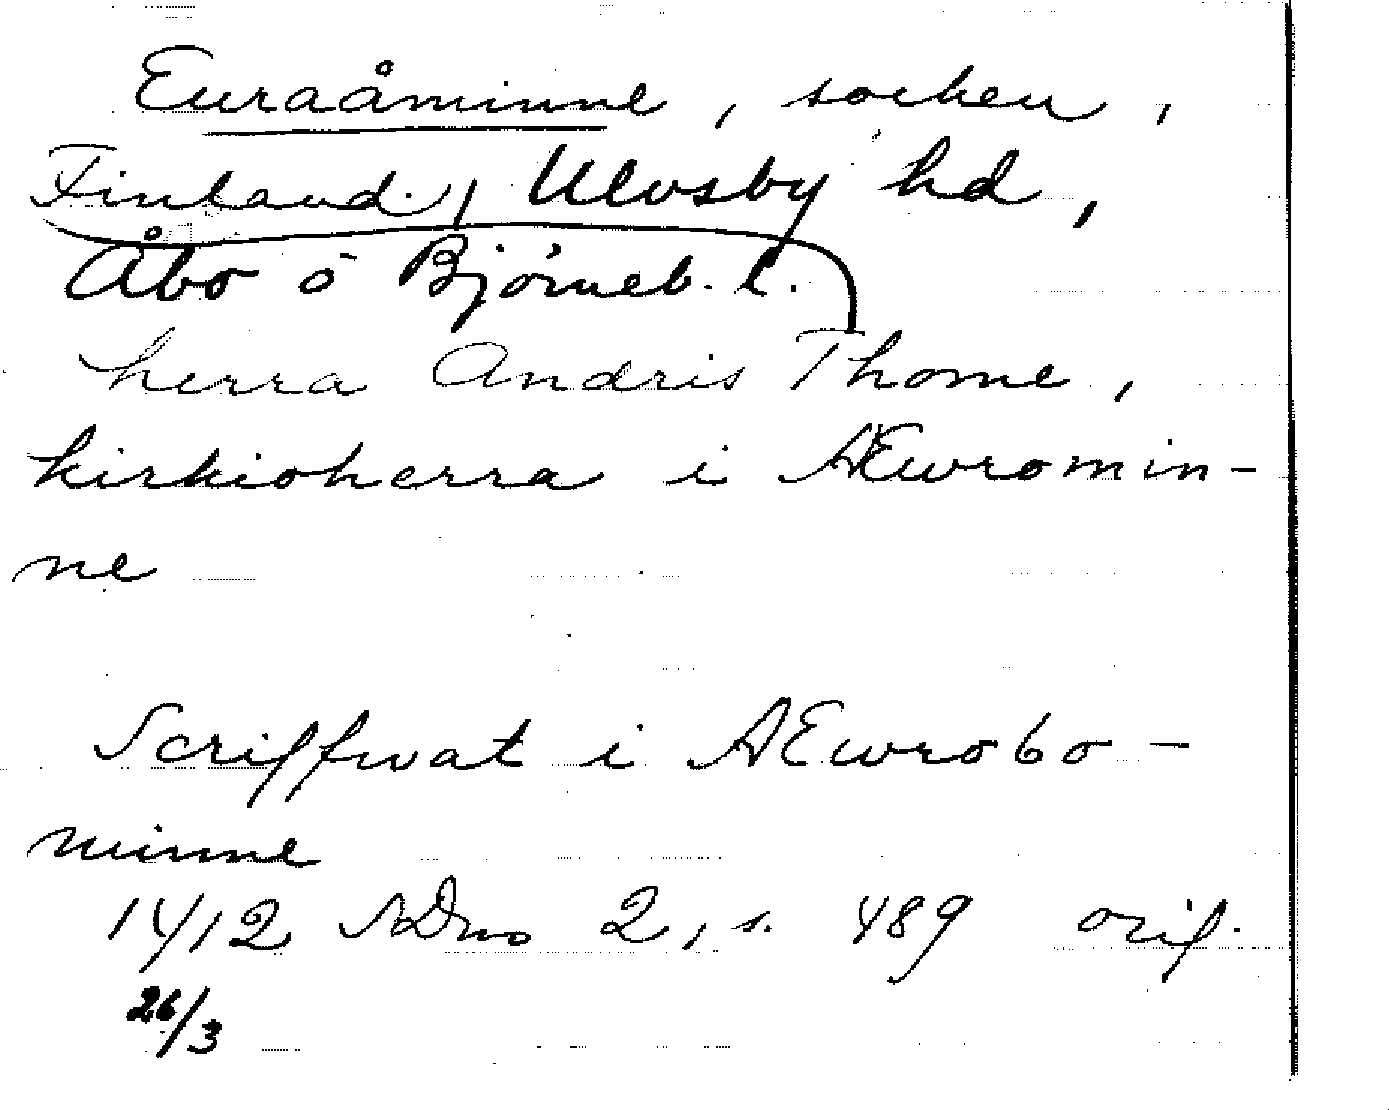 Euraåminne, socken,
Finland, Ulvsby hd,
Åbo o Björneb. l.
herra Andris Thome,
kirkioherra i AEwromin-
ne
Scriffwat i AEwrobo-
minne
1412 SDns 2, s. 489 orig.
26/3